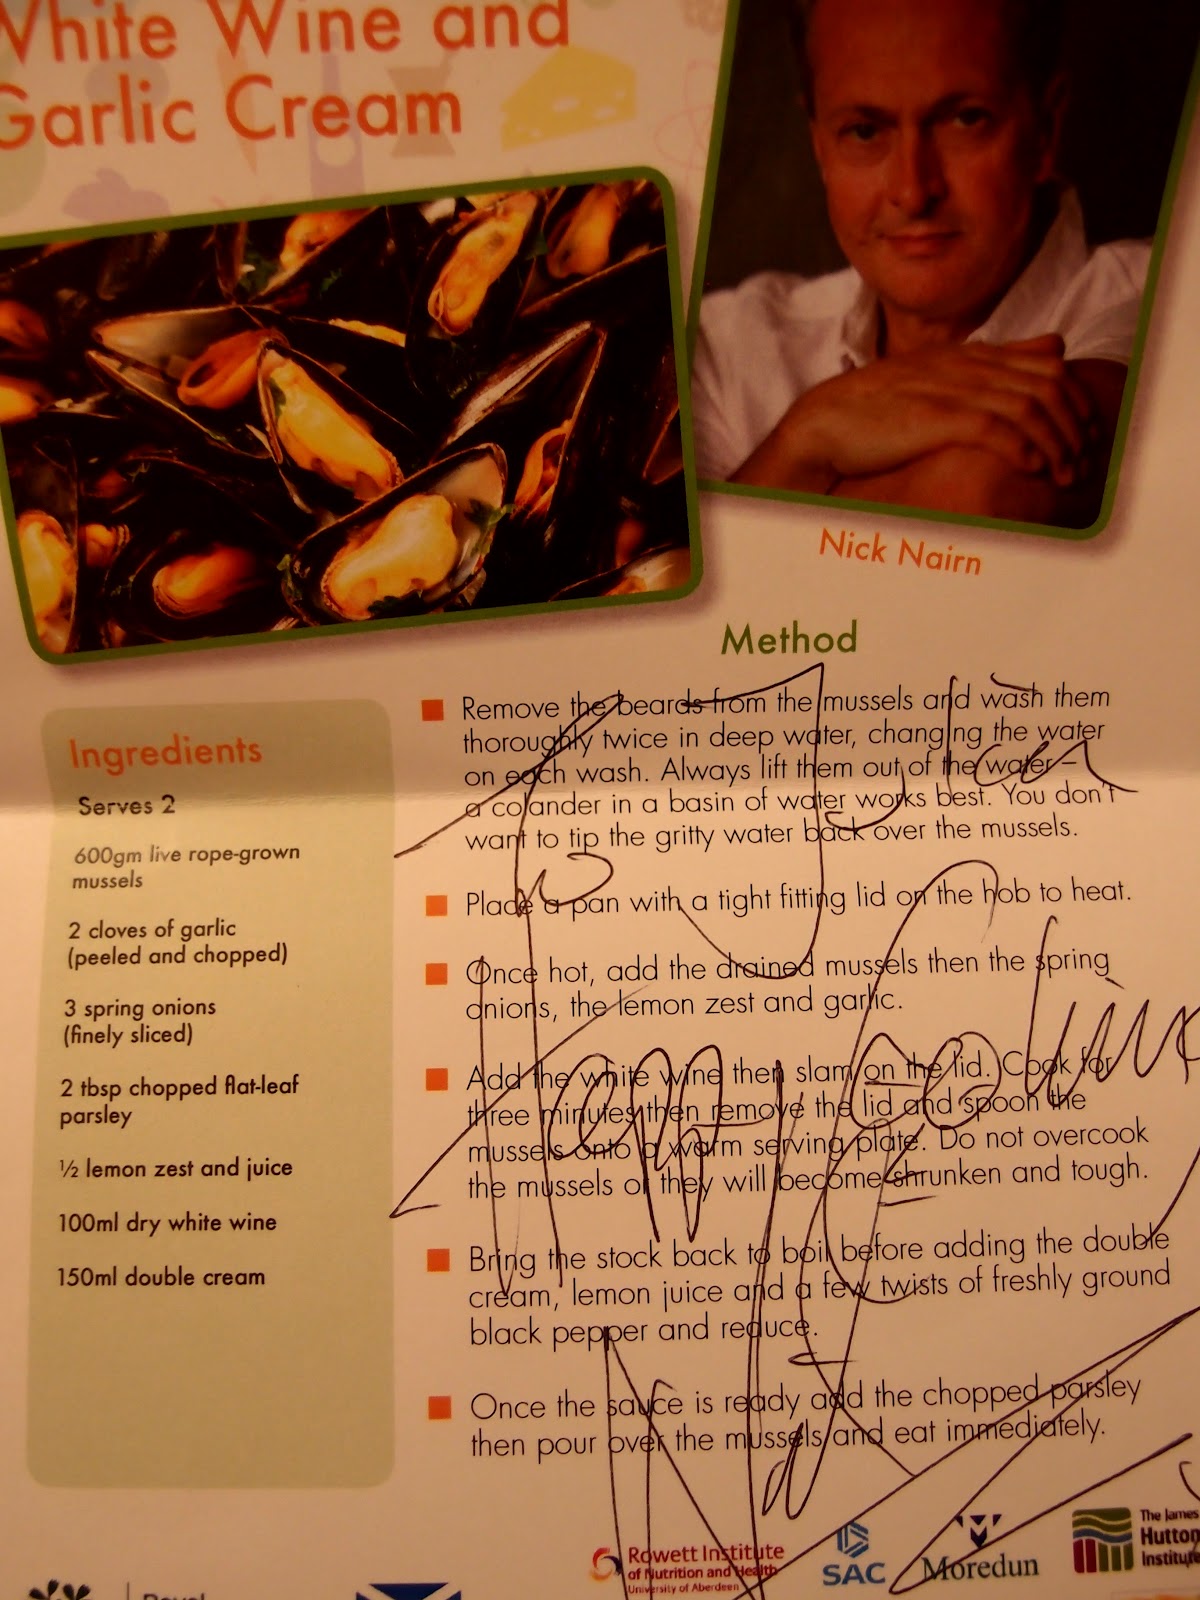 White Wine and
Garlic Cream
Nick Nairn
Method
Remove the beards from the mussels and wash them
thoroughly twice in deep water, changing the water
on each wash. Always lift them out of the water –
a colander in a basin of water works best. You don't
want to tip the gritty water back over the mussels.
Place a pan with a tight fitting lid on the hob to heat.
Once hot, add the drained mussels then the spring
onions, the lemon zest and garlic.
Add the white wine then slam on the lid. Cook for
three minutes then remove the lid and spoon the
mussels onto a warm serving plate. Do not overcook
the mussels or they will become shrunken and tough.
Bring the stock back to boil before adding the double
cream, lemon juice and a few twists of freshly ground
black pepper and reduce.
Once the sauce is ready add the chopped parsley
then pour over the mussels and eat immediately.
Ingredients
Serves 2
600gm live rope-grown
mussels
2 cloves of garlic
(peeled and chopped)
3 spring onions
(finely sliced)
2 tbsp chopped flat-leaf
parsley
½ lemon zest and juice
100ml dry white wine
150ml double cream
To
Happy Cooking
Rowett Institute
of Nutrition and Health
University of Aberdeen
SAC
Moredun
The James
Hutton
Institute